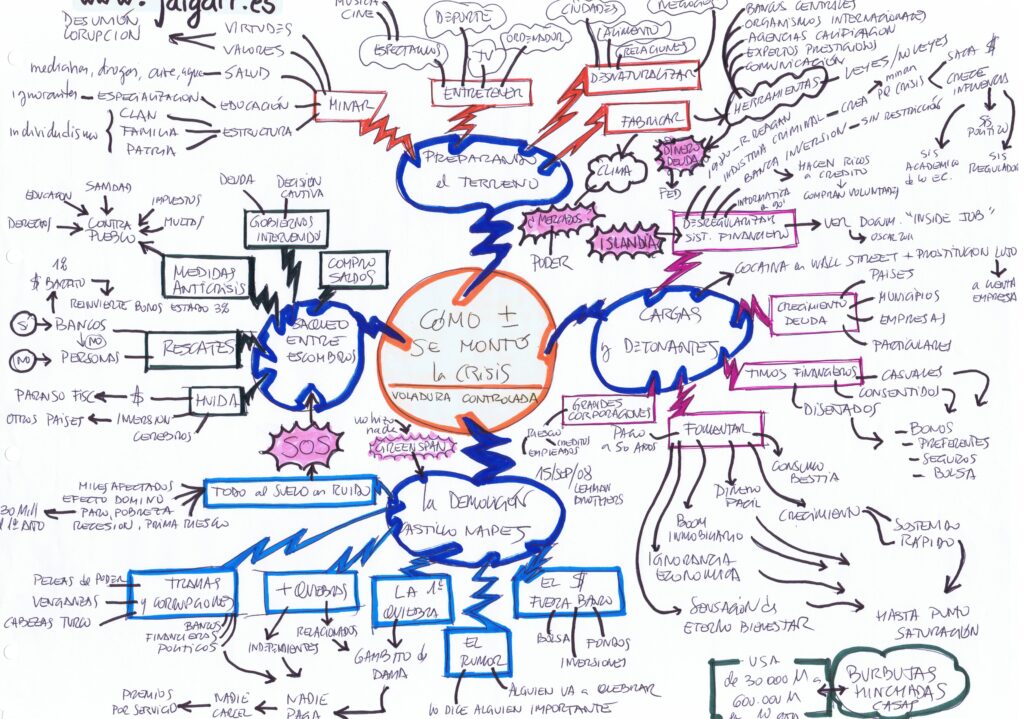 www.jalgarr.es
DESUNION
CORUPCION
VIRTUDES
VALORES
SALUD
ignorantes
ESPECIALIZACION
EDUCACIÓN
individualismo
CLAN
FAMILIA
PATRIA
ESTRUCTURA
MINAR
MUSICA
CINE
ESPECTACULOS
DEPORTE
TV
ORDENADOR
ENTRETENER
CIUDADES
ALIMENTO
RELACIONES
NEGOCIOS
DESNATURALIZAR
FABRICAR
CLIMA
PREPARANDO
el TERRENO
BANCOS CENTRALES
ORGANISMOS INTERNACIONALES
AGENCIAS CALIFICACION
EXPERTOS PRESTIGIOSOS
COMUNICACIÓN
HERRAMIENTAS
LEYES / NO LEYES
DINERO
DEUDA
FED
1980-R. REAGAN
INDUSTRIA CRIMINAL
CREA
CRISIS
BANCA INVERSION
SIN RESTRICCIÓN
SACA $
CRECE
INFLUENCIA
$$
POLITICO
SIS
ACADEMICO
SIS
REGULADOR
HACEN RICOS
a CREDITO
COMPRAN VOLUNTAD
INFORMATICA
a 90'
MERCADOS
PODER
ISLANDIA
DESREGULARIZAR
SIST. FINANCIERO
VER DOCUM. "INSIDE JOB"
COCAINA en WALL STREET + PROSTITUCION LUJO
a CUENTA
EMPRESA
EDUCACION
SANIDAD
IMPUESTOS
DERECHOS
CONTRA
PUEBLO
MULTAS
DEUDA
DECISIÓN
CAUTIVA
GOBIERNOS
INTERVENIDOS
MEDIDAS
ANTICRISIS
COMPRO
SALDOS
1%
$ BARATO
REINVIERTE BONOS ESTADO 3%
SÍ
BANCOS
NO
NO
PERSONAS
RESCATES
PARAISO FISC
$
HUIDA
OTROS PAISES
INVERSION
CEREBROS
SAQUEO
ENTRE
ESCOMBROS
CÓMO ±
SE MONTÓ
la CRISIS
VOLADURA CONTROLADA
CARGAS
y DETONANTES
CRECIMIENTO
DEUDA
PAISES
MUNICIPIOS
EMPRESAS
PARTICULARES
TIMOS FINANCIEROS
CASUALES
CONSENTIDOS
DISEÑADOS
- BONOS
- PREFERENTES
- SEGUROS
- BOLSA
GRANDES
CORPORACIONES
RIESGO
CREDITOS
EMPLEADOS
PAGO
a 50 AÑOS
FOMENTAR
CONSUMO
BESTIA
DINERO
FACIL
CRECIMIENTO
SOSTENIDO
RÁPIDO
BOOM
INMOBILIARIO
IGNORANCIA
ECONOMICA
SENSACIÓN de
ETERNO BIENESTAR
HASTA PUNTO
SATURACIÓN
SOS
no hizo
nada
GREENSPAN
15/SEP/08
LEHMAN
BROTHERS
la DEMOLICIÓN
CASTILLO NAIPES
TODO al SUELO en RUIDO
MILES AFECTADOS
EFECTO DOMINÓ
PARO, POBREZA
RECESION, PRIMA RIESGO
30 Mill
1º AÑO
PELEAS de PODER
VENGANZAS
CABEZAS TURCO
TRAMAS
y CORRUPCIONES
BANCOS
FINANCIEROS
POLITICOS
+ QUIEBRAS
INDEPENDIENTES
RELACIONADOS
LA 1ª
QUIEBRA
GAMBITO de
DAMA
NADIE
PAGA
NADIE
CARCEL
PREMIOS
POR SERVICIO
EL
RUMOR
ALGUIEN VA a QUEBRAR
lo DICE ALGUIEN IMPORTANTE
EL $
FUERA BANCO
BOLSA
INVERSIONES
FONDOS
USA
de 30.000 M a
600.000 M
BURBUJAS
HINCHADAS
CASAS